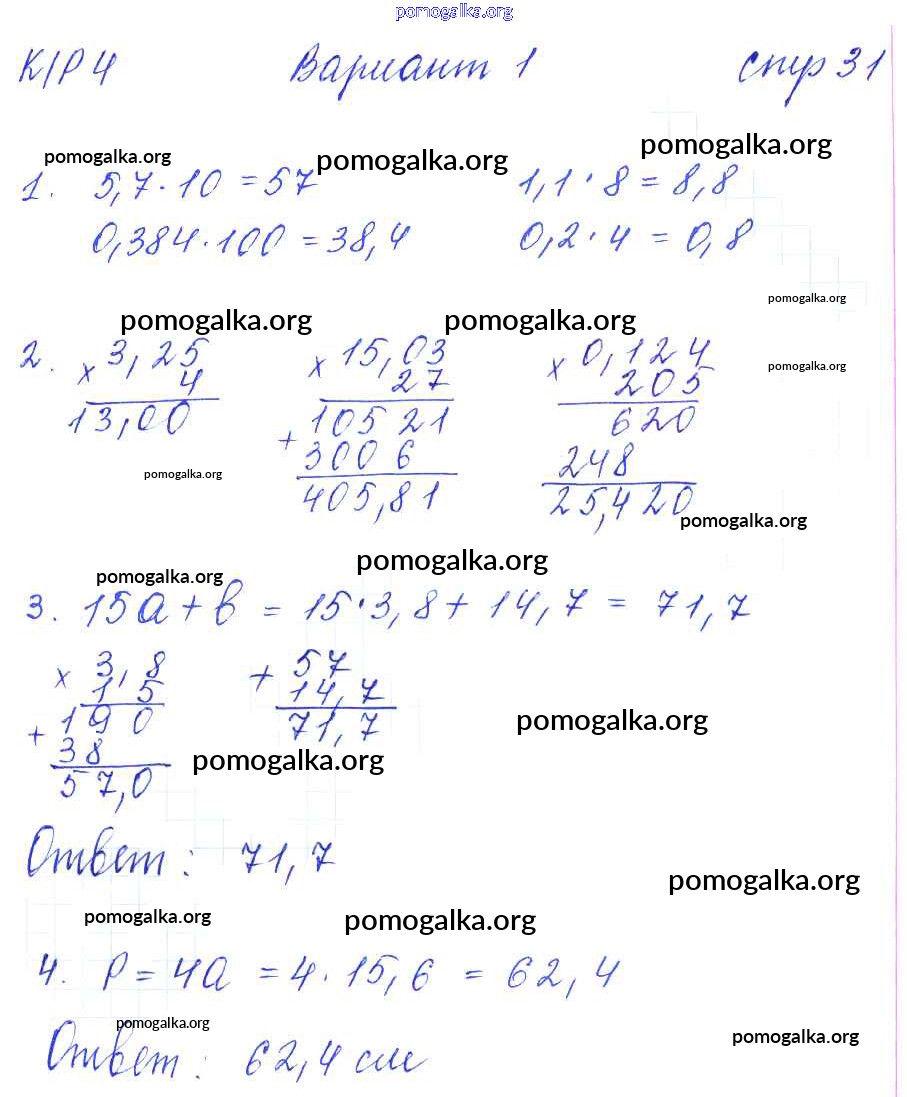 pomogalka.org
К/Р 4 Вариант 1 стр 31
pomogalka.org pomogalka.org pomogalka.org
1. 5,7 · 10 = 57 1,1 · 8 = 8,8
0,384 · 100 = 38,4 0,2 · 4 = 0,8
pomogalka.org
pomogalka.org pomogalka.org
2. × 3,25 × 15,03 × 0,124
pomogalka.org
4 27 205
13,00 105 21 620
+ 300 6 248
pomogalka.org
405,81 25,420
pomogalka.org
pomogalka.org
pomogalka.org
3. 15a + b = 15 · 3,8 + 14,7 = 71,7
× 3,8 + 57
15 14,7
+ 190 71,7
pomogalka.org
38
pomogalka.org
57,0
Ответ: 71,7
pomogalka.org
pomogalka.org pomogalka.org
4. P = 4a = 4 · 15,6 = 62,4
pomogalka.org
pomogalka.org
Ответ: 62,4 см